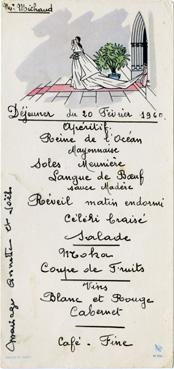 Mr Michaud
Déjeuner du 20 Février 1960
Apéritif
Reine de l'Océan
Mayonnaise
Soles Meunière
Langue de Bœuf
sauce Madère
Réveil matin endormi
Céléri braisé
Salade
Moka
Coupe de Fruits
Vins
Blanc et Rouge
Cabernet
Café - Fine
Mariage Annette et Joël